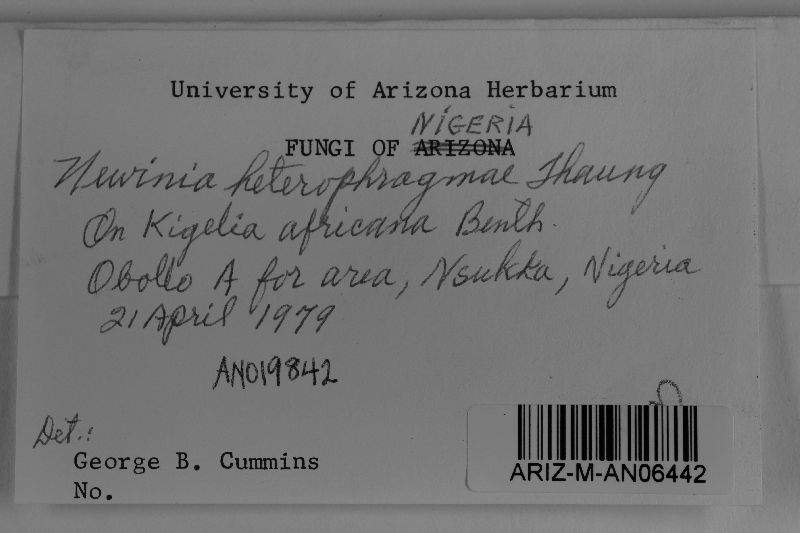 University of Arizona Herbarium
NIGERIA
FUNGI OF ARIZONA
Newinia heterophragmae Thaung
On Kigelia africana Benth.
Obollo A for area, Nsukka, Nigeria
21 April 1979
AN019842
Det.:
George B. Cummins
No.
ARIZ-M-AN06442